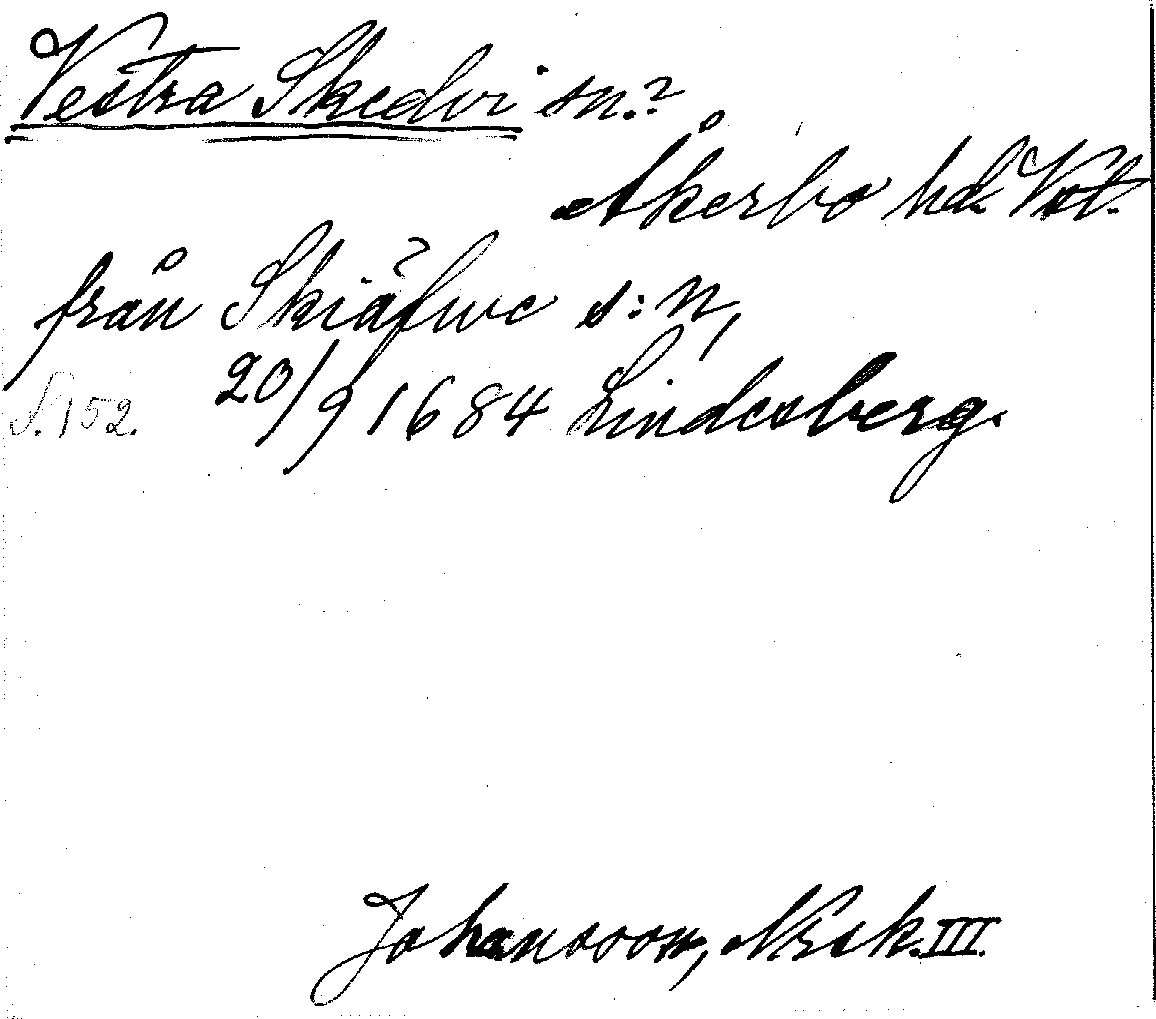 Vestra Skedvi sn.?
Åkerbo hd. Vstl.
från Skiäfwe s:n,
S. 152. 20/9 1684 Lindesberg.
Johansson, Nrsk. III.